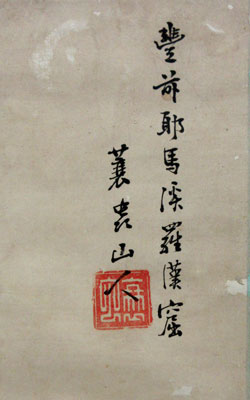 豊前耶馬溪羅漢窟
蓑虫山人